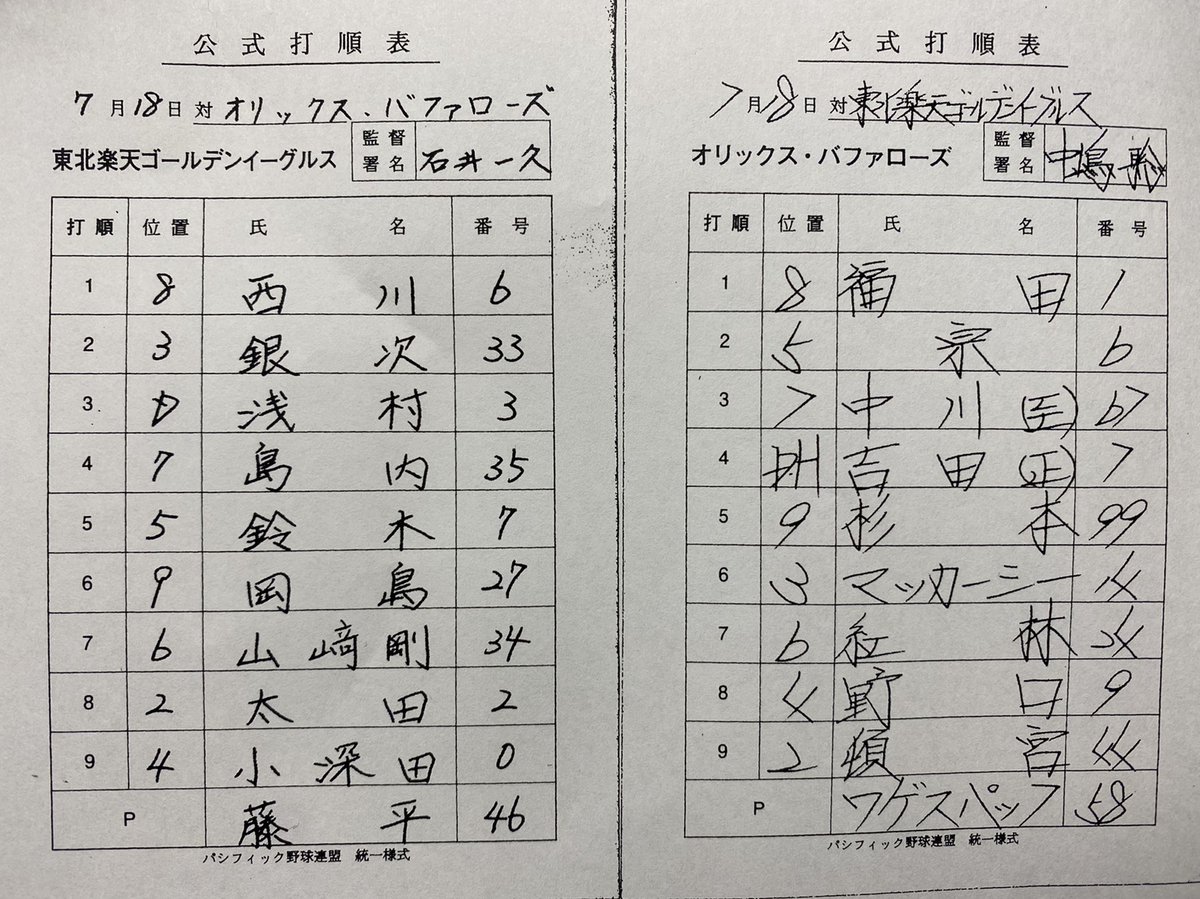 公式打順表
7月18日 対 オリックス・バファローズ
東北楽天ゴールデンイーグルス 監督署名 石井一久
打順 位置 氏名 番号
1 8 西川 6
2 3 銀次 33
3 D 浅村 3
4 7 島内 35
5 5 鈴木 7
6 9 岡島 27
7 6 山﨑剛 34
8 2 太田 2
9 4 小深田 0
P 藤平 46
パシフィック野球連盟 統一様式
公式打順表
7月18日 対 東北楽天ゴールデンイーグルス
オリックス・バファローズ 監督署名 中嶋聡
打順 位置 氏名 番号
1 8 福田 1
2 5 宗 6
3 7 中川(圭) 67
4 DH 吉田(正) 7
5 9 杉本 99
6 3 マッカーシー 4
7 6 紅林 24
8 4 野口 9
9 2 頓宮 44
P ワゲスパック 58
パシフィック野球連盟 統一様式